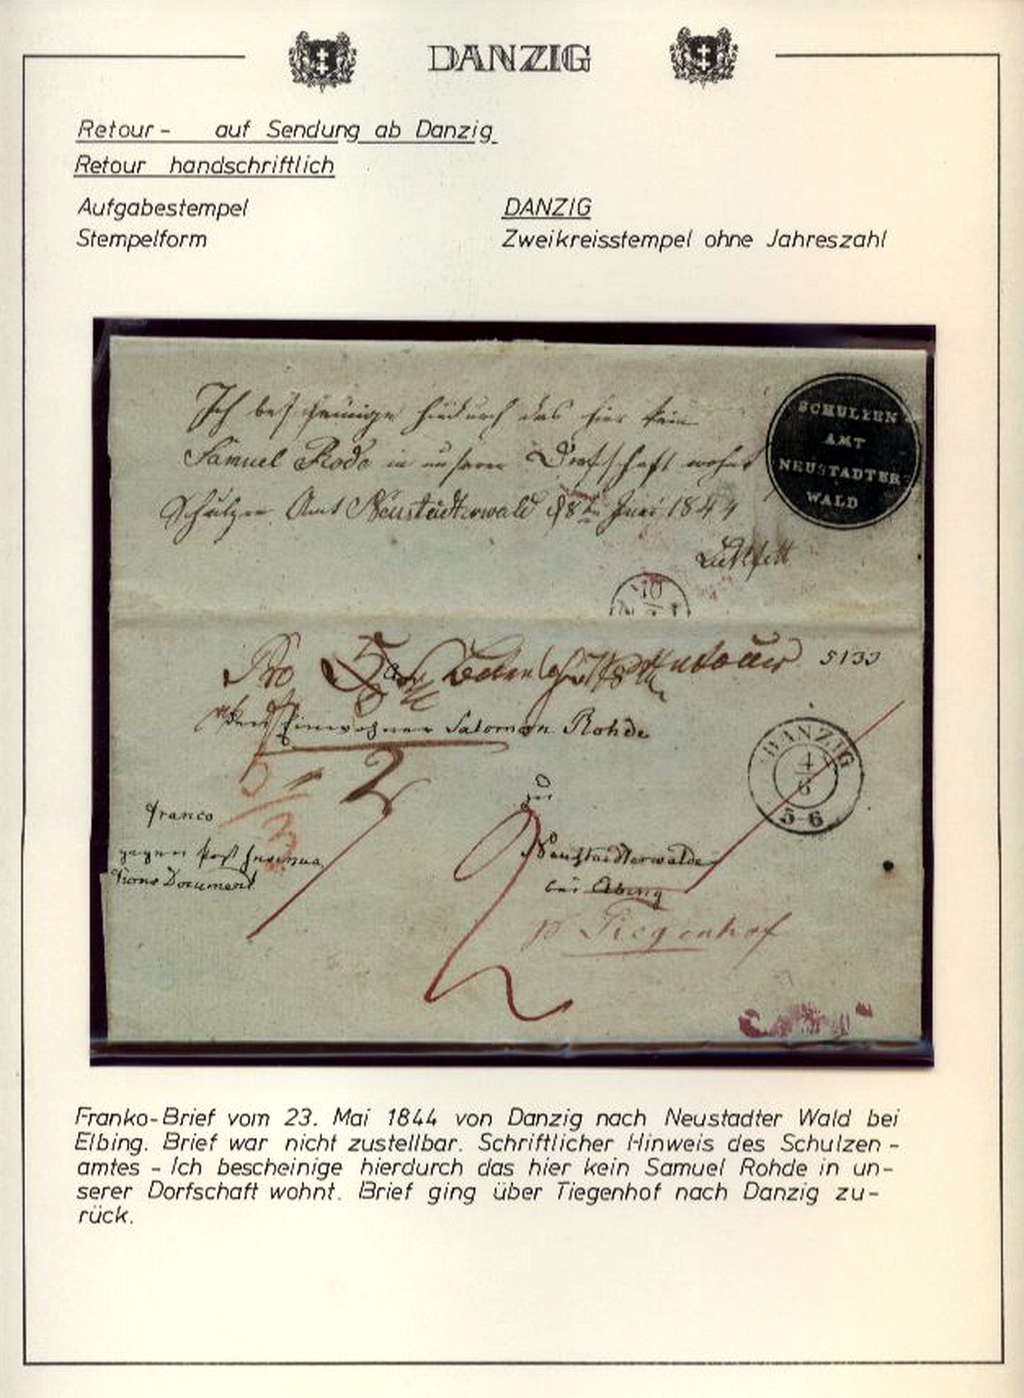 DANZIG
Retour- auf Sendung ab Danzig
Retour handschriftlich
Aufgabestempel DANZIG
Stempelform Zweikreisstempel ohne Jahreszahl
Ich bescheinige hiedurch das hier kein
Samuel Rode in unserer Dorfschaft wohnt
Schulzen Amt Neustädterwald d 8ten Juni 1844
SCHULZEN
AMT
NEUSTADTER
WALD
10
Pro
5133
den Einwohner Salomon Rohde
DANZIG
4
6
5-6
2
zu
franco
Neustaedterwalde
gegen Post
bei Elbing
Document
p Tiegenhof
Franko-Brief vom 23. Mai 1844 von Danzig nach Neustadter Wald bei
Elbing. Brief war nicht zustellbar. Schriftlicher Hinweis des Schulzen-
amtes - Ich bescheinige hierdurch das hier kein Samuel Rohde in un-
serer Dorfschaft wohnt. Brief ging über Tiegenhof nach Danzig zu-
rück.